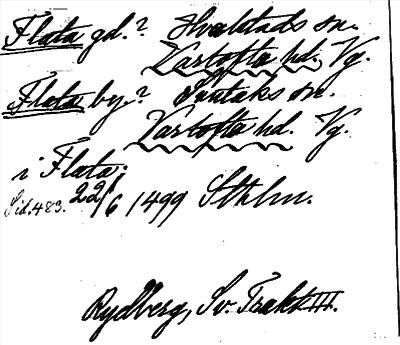 Flata gd.? Hvalstads sn.
Vartofta hd. Vg.
Flata by? Suntaks sn.
Vartofta hd. Vg.
i Flata;
Sid. 483. 22/6 1499 Sthlm.
Rydberg, Sv. Trakt III.